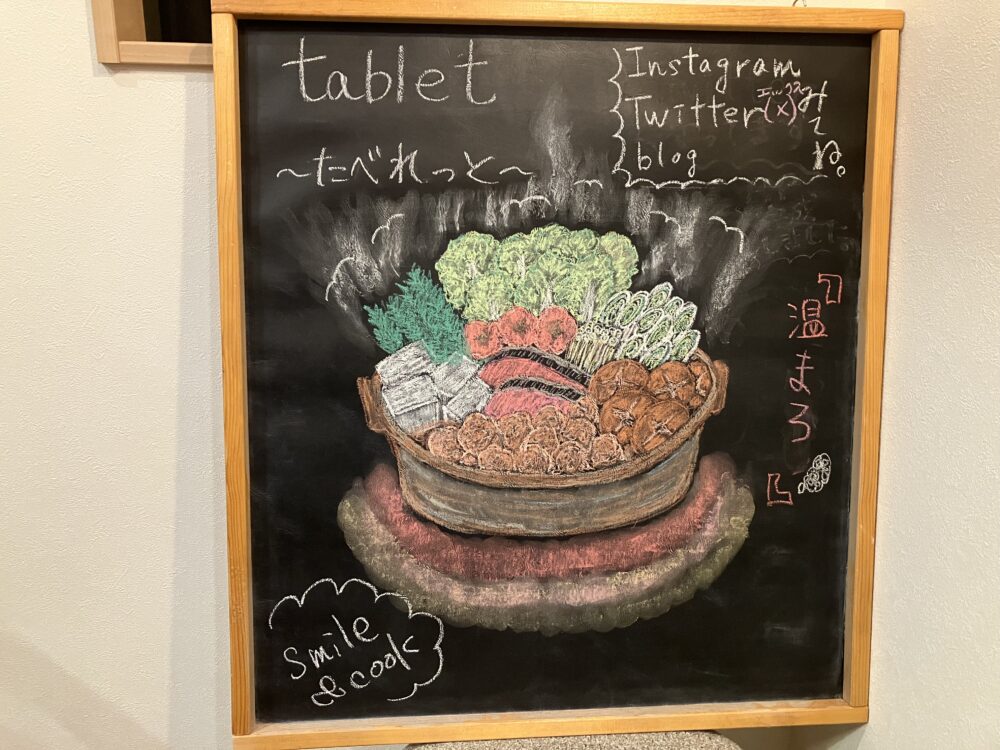 tablet
〜たべれっと〜
Instagram
Twitter(X)
blog
みてね。
『温まろ』
smile
&cook